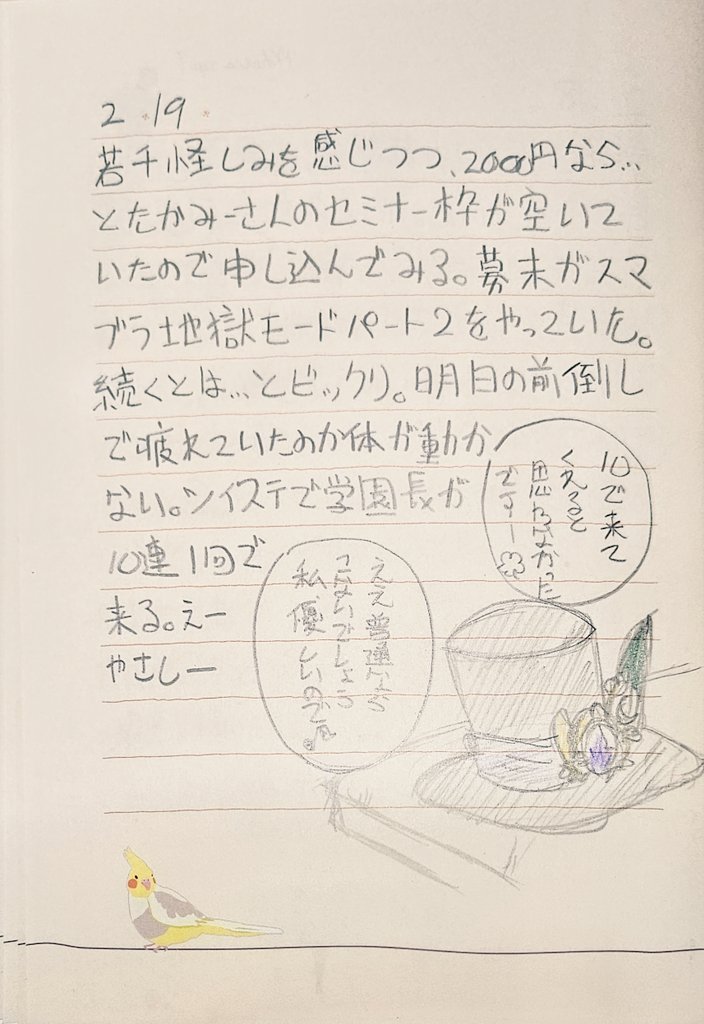 2.19
若千怪しみを感じつつ、2000円なら…
とたかみーさんのセミナー枠が空いて
いたので申し込んでみる。幕末がスマ
ブラ地獄モードパート2をやっていた。
続くとは…とビックリ。明日の前倒し
で疲れていたのか体が動か
ない。ツイステで学園長が
10連1回で
来る。えー
やさしー
10で来て
くれると
思わなかった
ですー
ええ普通なら
こないでしょう
私、優しいので。